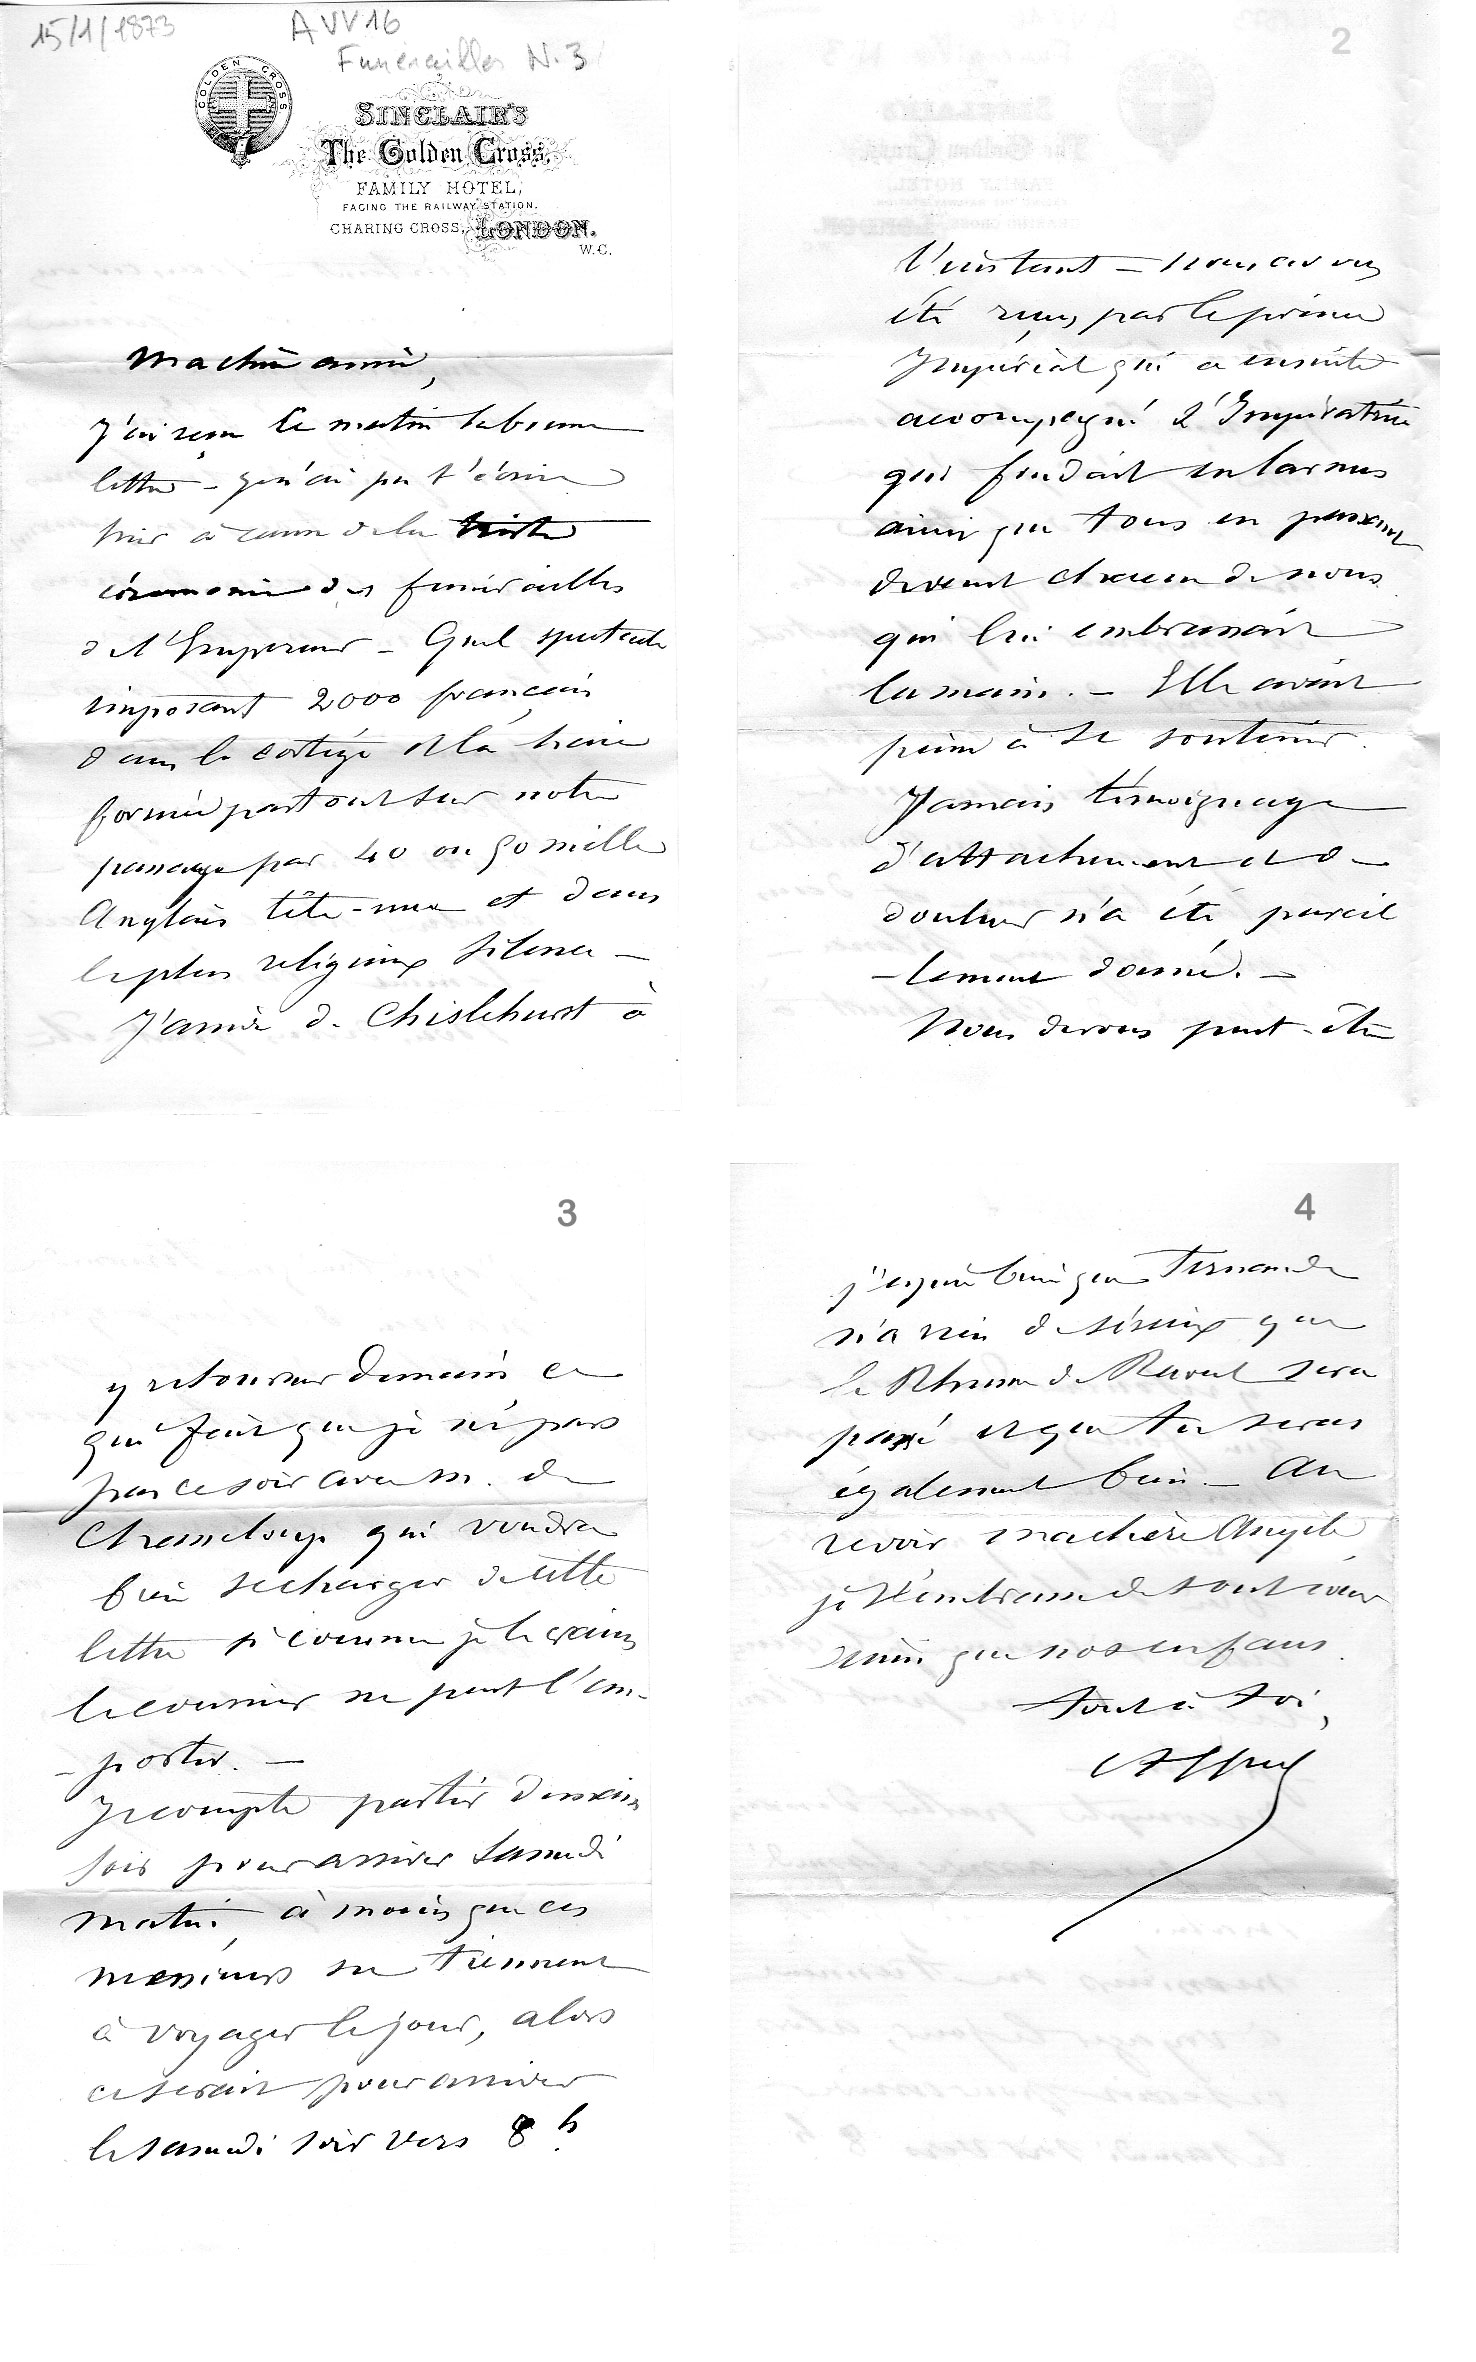 15/1/1873
AVV16
Funérailles N.3
GOLDEN CROSS
SINCLAIR'S
The Golden Cross,
FAMILY HOTEL,
FACING THE RAILWAY STATION.
CHARING CROSS, LONDON.
W.C.
Ma chère amie,
J'ai reçu ce matin ta bonne
lettre – je n'ai pu t'écrire
hier à cause de la triste
cérémonie des funérailles
de l'Empereur – Quel spectacle
imposant 2000 français
dans le cortège et la haie
formée partout sur notre
passage par 40 ou 50 mille
Anglais tête-nue et dans
le plus religieux silence –
J'arrive de Chislehurst à
2
l'instant – nous avons
été reçus par le prince
Impérial qui a ensuite
accompagné l'Impératrice
qui fondait en larmes
ainsi que tous en passant
devant chacun de nous
qui lui embrassait
la main. – Elle avait
peine à se soutenir.
Jamais témoignage
d'attachement et de
douleur n'a été pareil
-lement donné. –
Nous devons peut-être
3
y retourner demain ce
qui fait que je ne pars
pas ce soir avec M. de
Chameloup qui voudra
bien se charger de cette
lettre si comme je le crains
le courrier ne peut l'em-
-porter. –
Je compte partir demain
soir pour arriver Samedi
matin, à moins que ces
messieurs ne tiennent
à voyager le jour, alors
ce serait pour arriver
le samedi soir vers 8 h.
4
j'espère bien que Fernande
n'a rien de sérieux que
le Rhume de Raoul sera
passé et que tu seras
également bien – Au
revoir ma chère Angèle,
je t'embrasse de tout cœur
ainsi que nos enfans.
tout à toi,